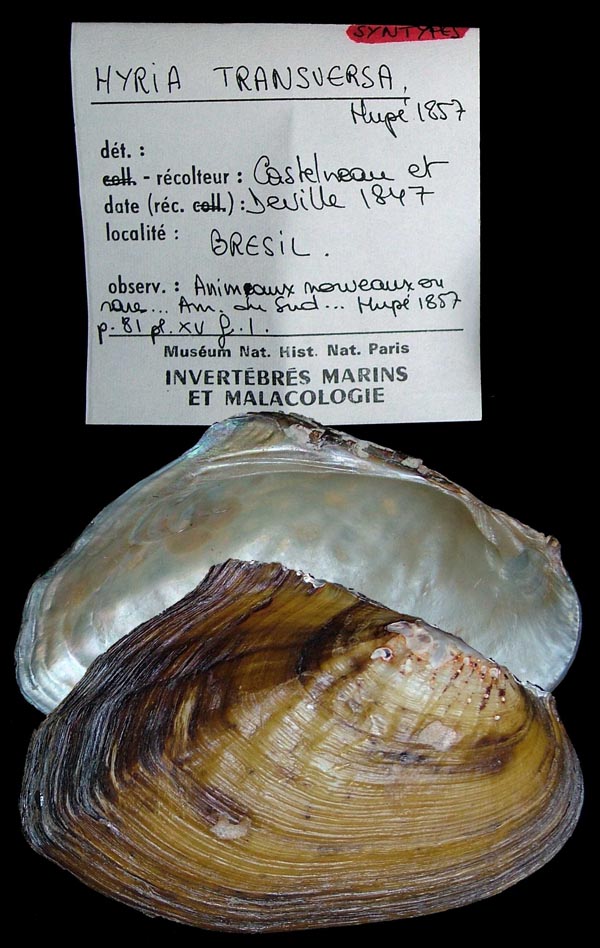 SYNTYPES
HYRIA TRANSVERSA,
Hupé 1857
dét. :
coll. - récolteur : Castelneau et
date (réc. coll.) : Deville 1847
localité : BRESIL.
observ. : Animeaux nouveaux ou
rare... Am. du Sud... Hupé 1857
p. 81 pl. XV f. 1.
Muséum Nat. Hist. Nat. Paris
INVERTÉBRÉS MARINS
ET MALACOLOGIE